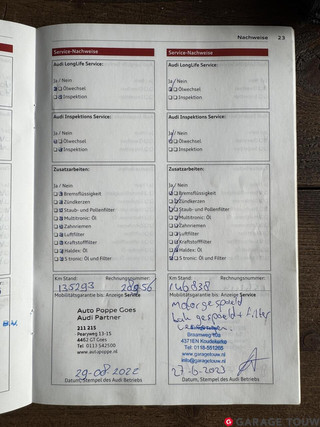 Nachweise 23
Service-Nachweise
Audi LongLife Service:
Ja / Nein
Ölwechsel
Inspektion
Audi Inspektions Service:
Ja / Nein
Ölwechsel
Inspektion
Zusatzarbeiten:
Ja / Nein
Bremsflüssigkeit
Zündkerzen
Staub- und Pollenfilter
Multitronic: Öl
Zahnriemen
Luftfilter
Kraftstofffilter
Haldex: Öl
S tronic: Öl und Filter
Km Stand: Rechnungsnummer:
135293
Mobilitätsgarantie bis: Anzeige Service
Auto Poppe Goes
Audi Partner
211 215
Pearyweg 13-15
4462 GT Goes
Tel 0113 542500
www.autopoppe.nl
29-08-2022
Datum, Stempel des Audi Betriebs
Service-Nachweise
Audi LongLife Service:
Ja / Nein
Ölwechsel
Inspektion
Audi Inspektions Service:
Ja / Nein
Ölwechsel
Inspektion
Zusatzarbeiten:
Ja / Nein
Bremsflüssigkeit
Zündkerzen
Staub- und Pollenfilter
Multitronic: Öl
Zahnriemen
Luftfilter
Kraftstofffilter
Haldex: Öl
S tronic: Öl und Filter
Km Stand: Rechnungsnummer:
146838
Mobilitätsgarantie bis: Anzeige Service
Motor gespoeld
bak gespoeld + filter
Braamweg 60a
4371EN Koudekerke
Tel: 0118-551266
www.garagetouw.nl
info@garagetouw.nl
27-6-2023
Datum, Stempel des Audi Betriebs
GARAGE TOUW